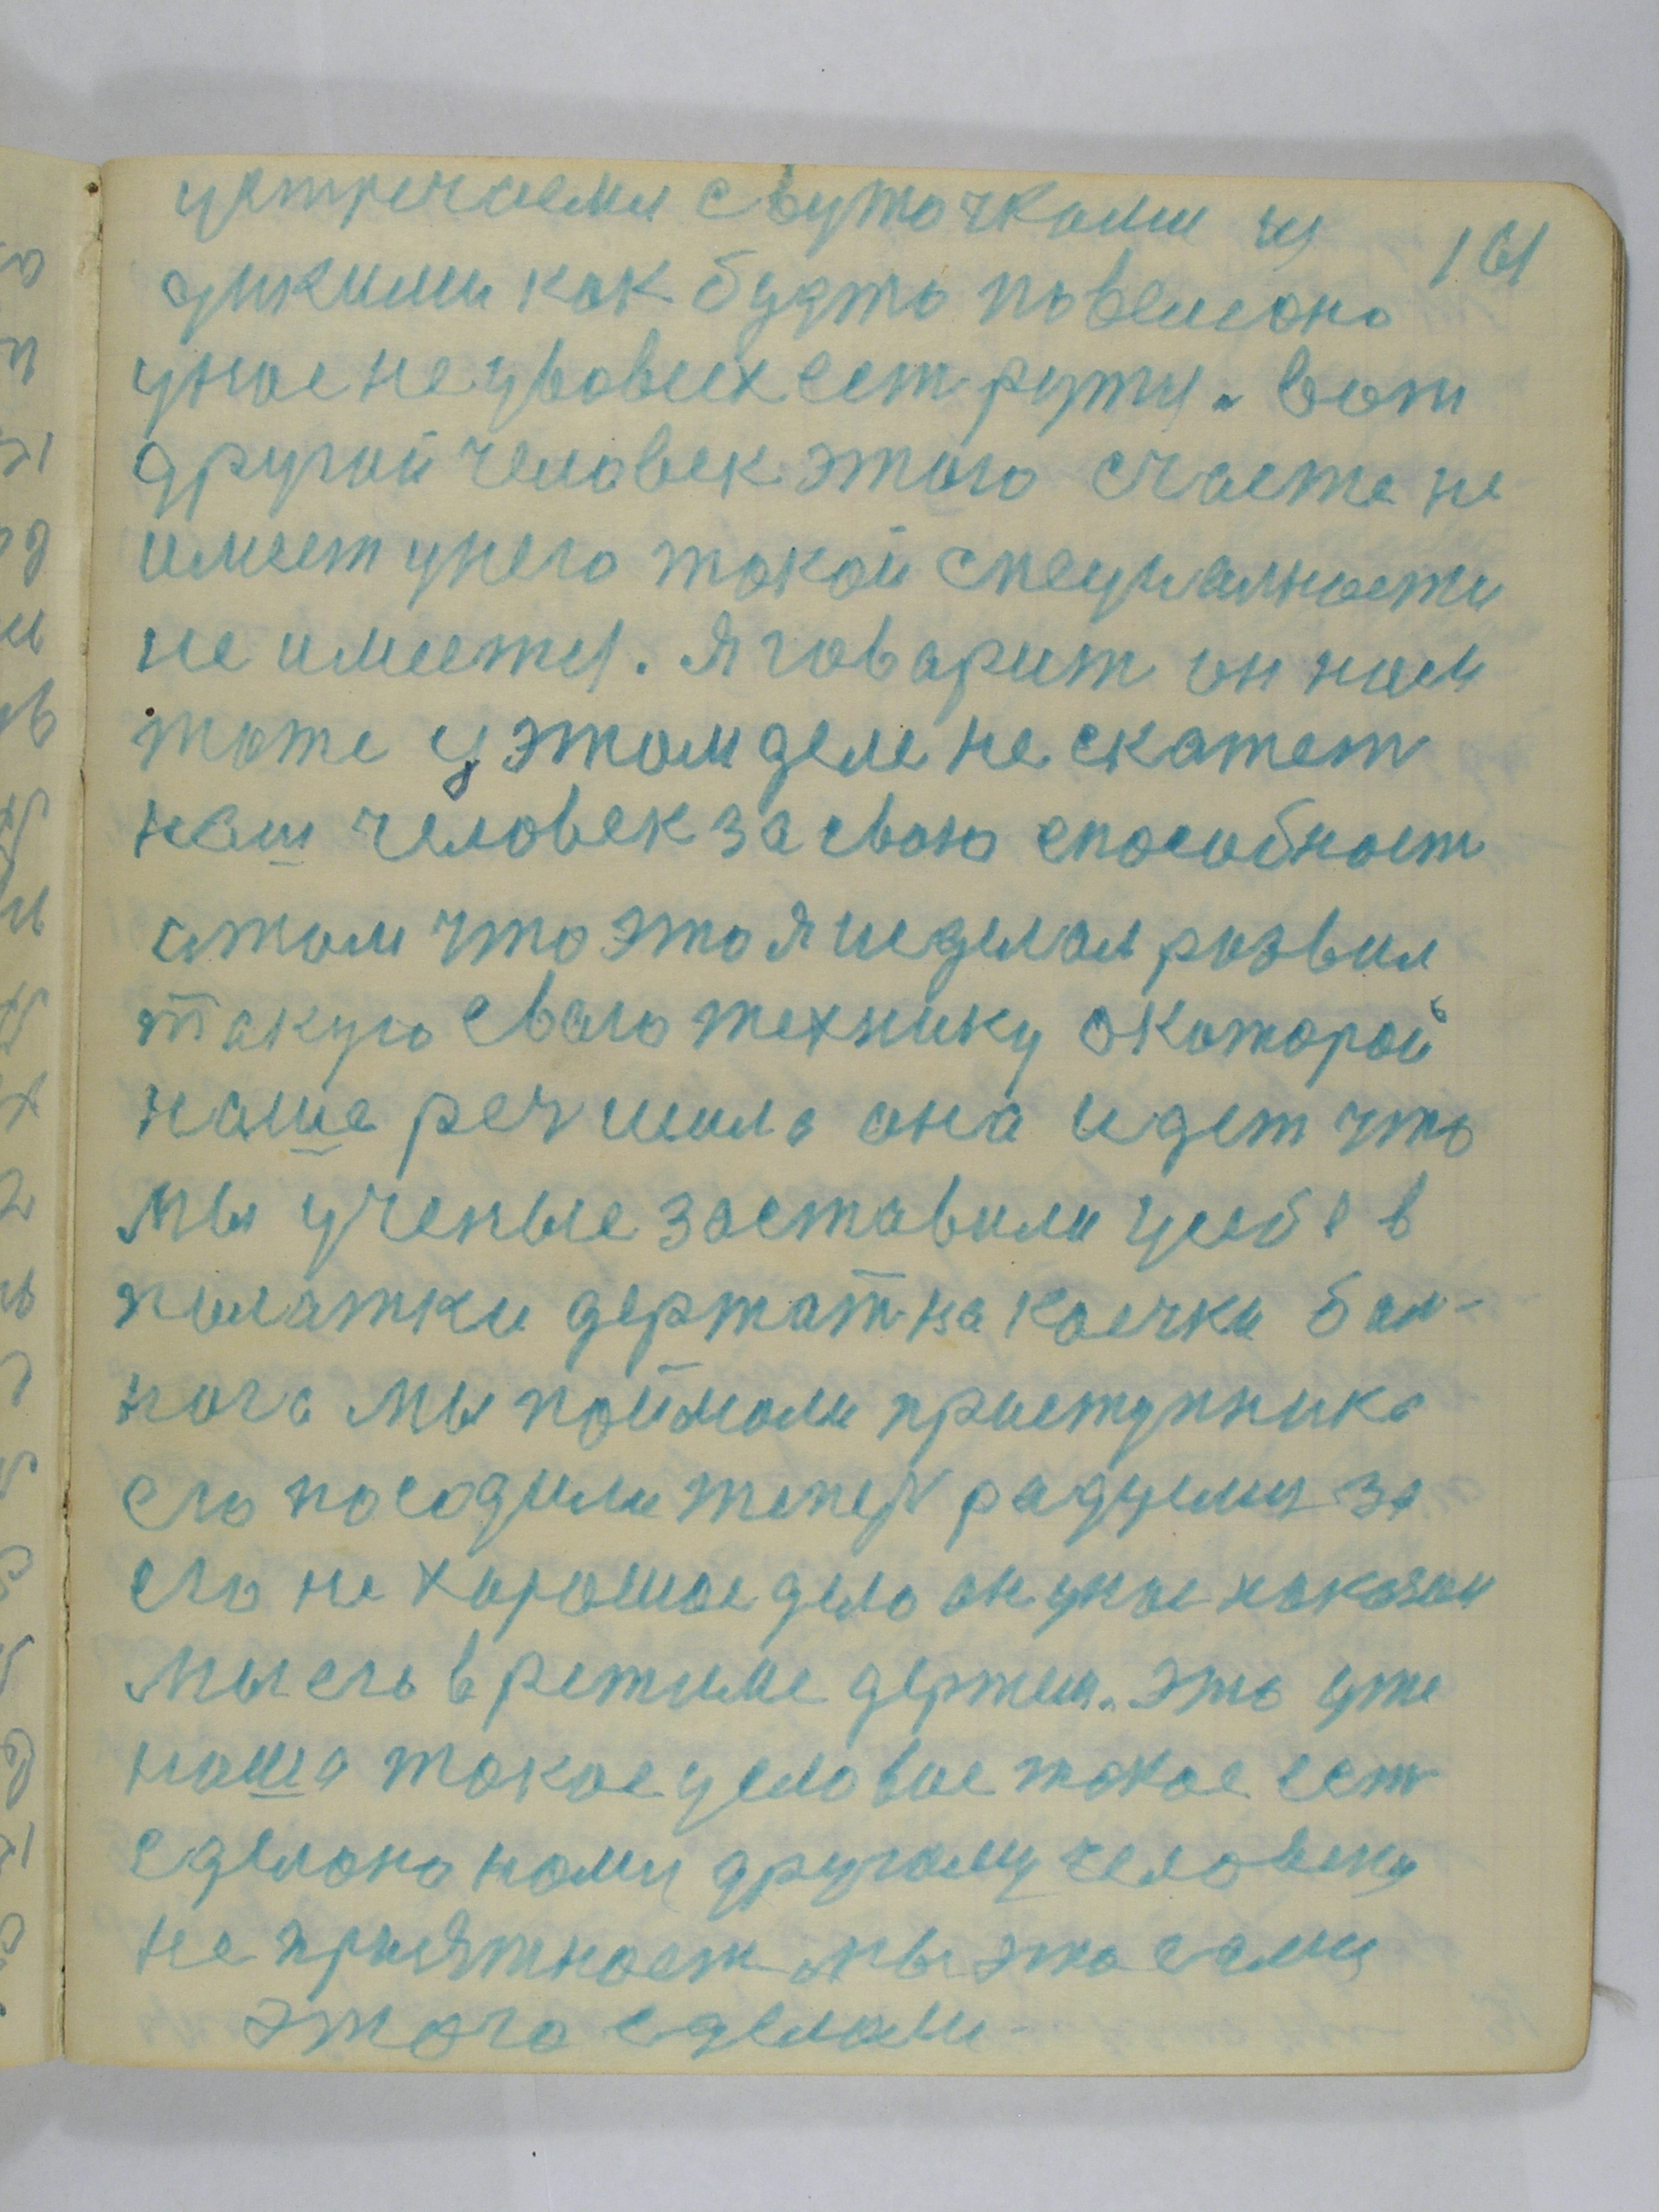 устричаеми свуточками из
дикими как будто повешоно
унас не увовсех ест руту. вот
другой человек этого счаста не
имеет унего такой специалности
не имеетц. я говарит он нам
тоже у этом деле не скажет
наш человек за свою способност
атом что это я иделал розвил
такую сваю технику окоторой
наша реч шила она идет что
мы ученые заставили усебе в
пылатки держат на коечки бал-
ного мы поймали приступника
его посодили тепер радуемц за
его не харошое дело он унас наказан
мы его в режиме держим. это уже
наша такое условие такое ест
сделоно нами другому человеку
не приятност мы это сами
этого сделали
161